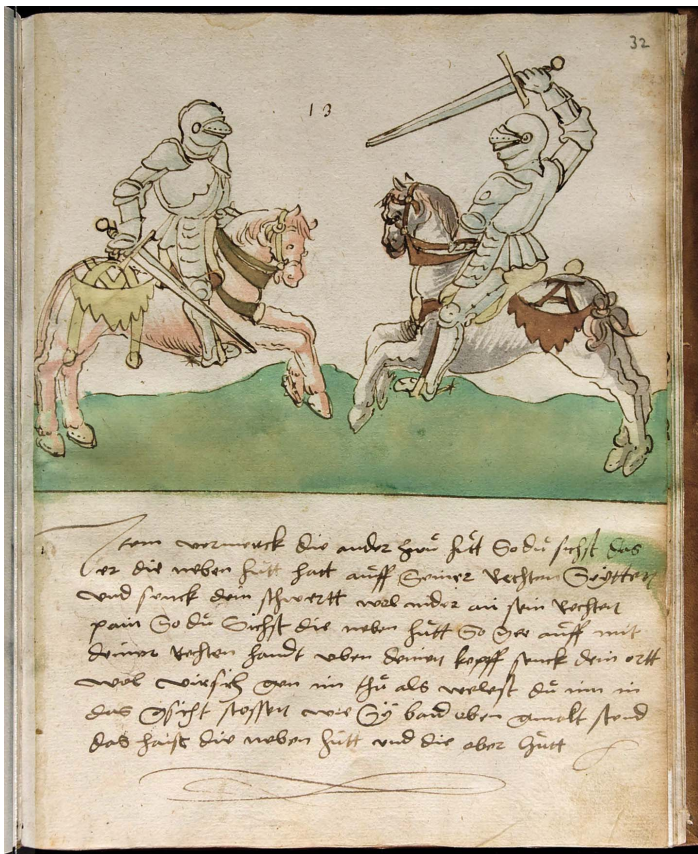 32
13
Item vermerck die ander zwů hůtt So du sichst das
er die neben hůtt hatt auff Seiner Rechten Seytten
und senck dein schwertt wol nider an sein Rechten
pain So dů Sichst die neben hůtt So auff mit
deiner Rechten handt oben deinen kopff senck dein ortt
wol gen im thů als welest dů im in
das gsicht stossen wie Sy baid oben gmalt stend
das haist die neben hůtt und die ober hůtt